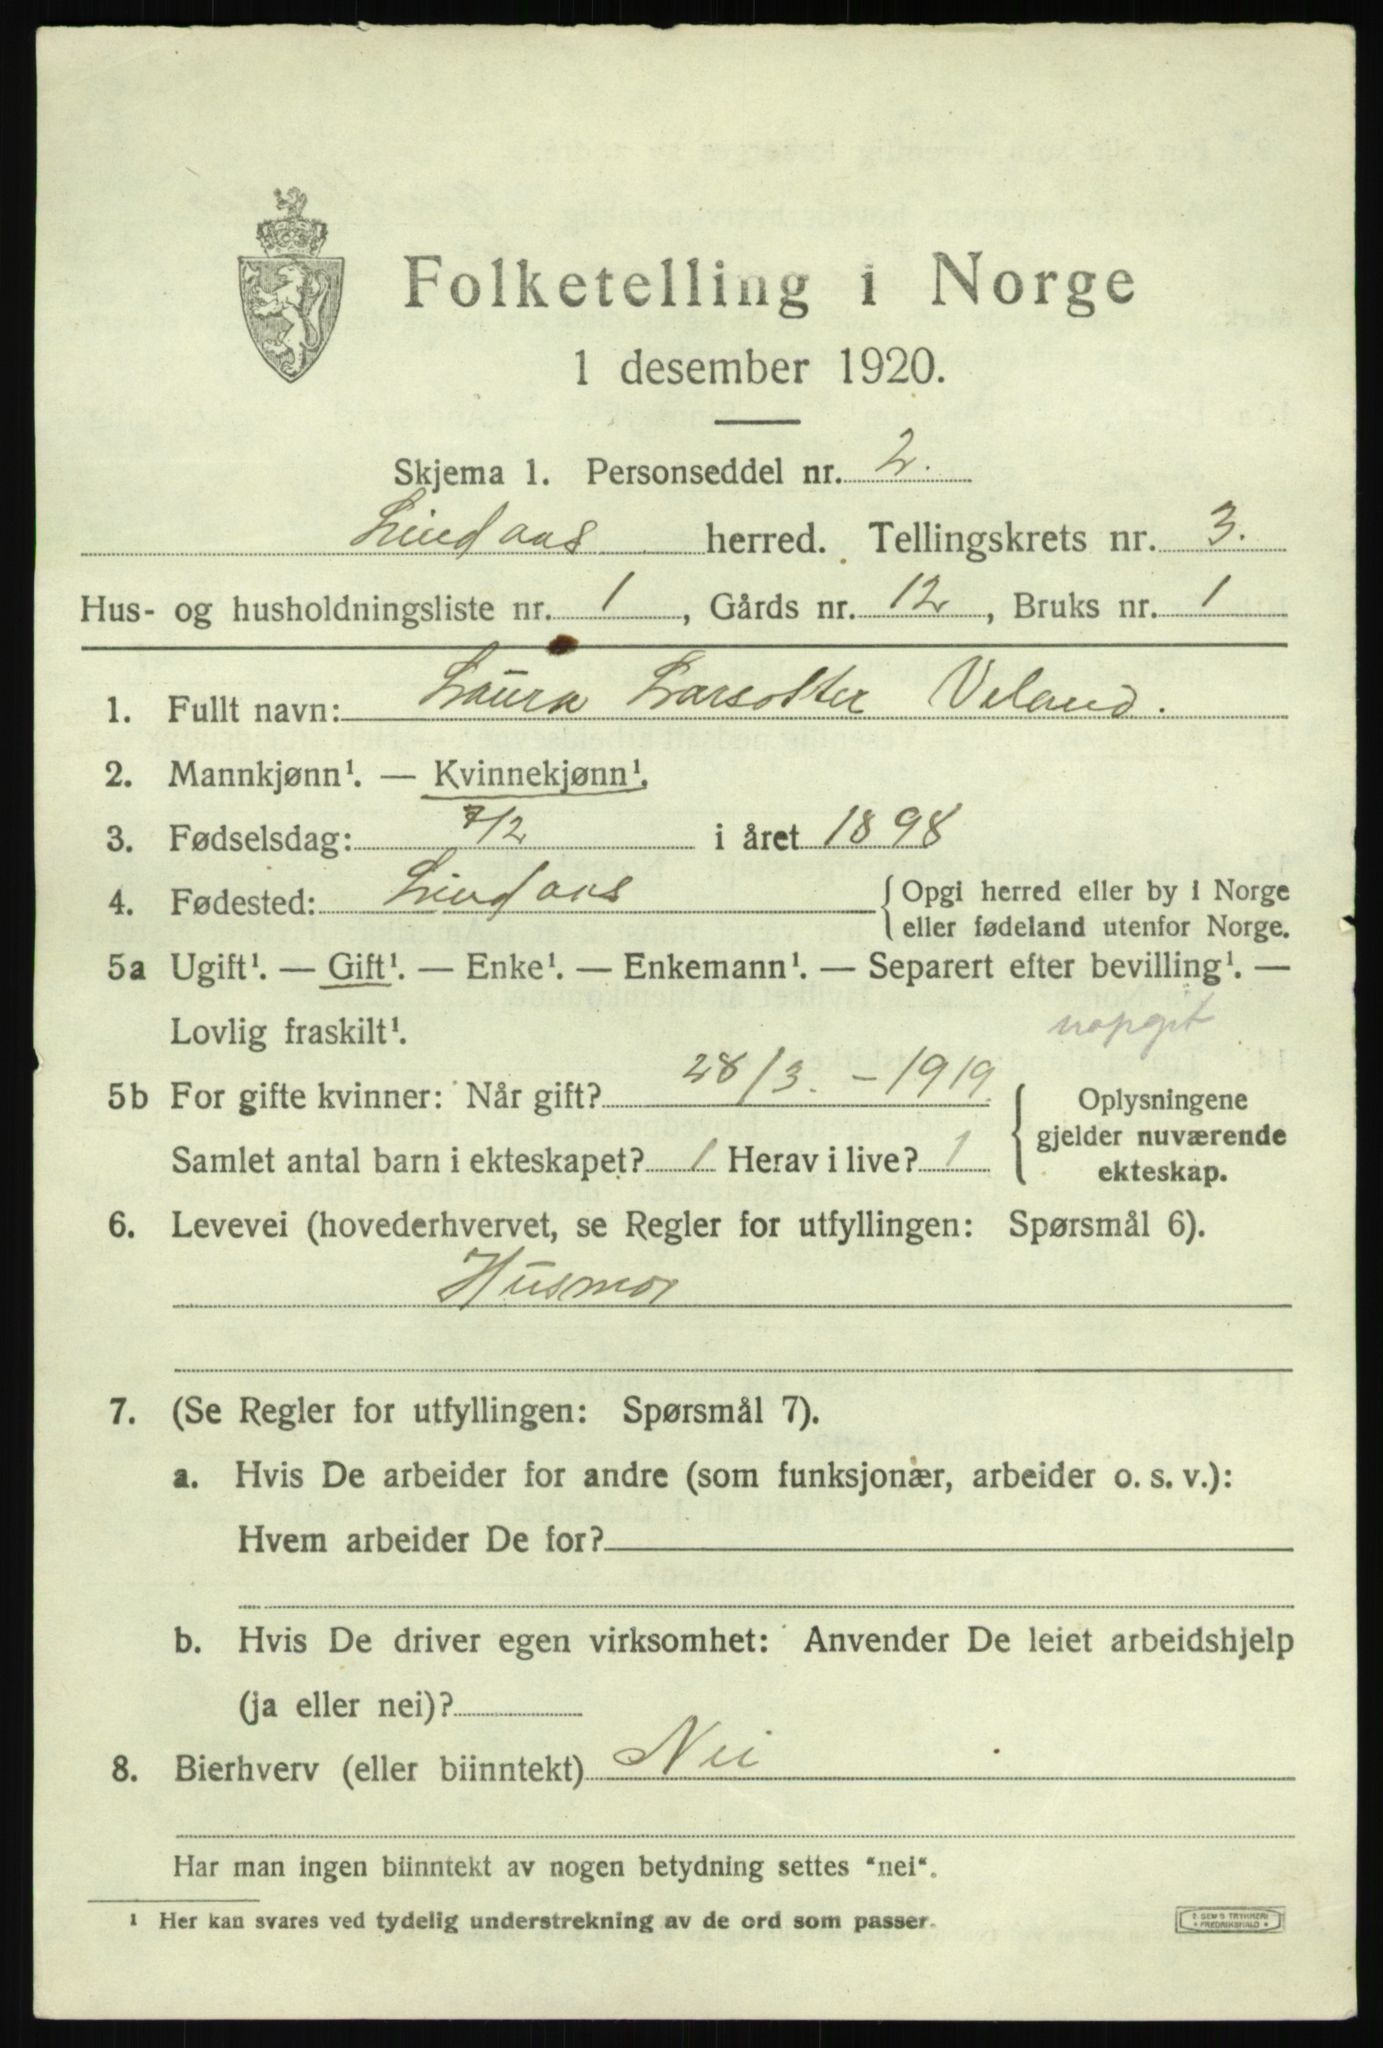 Folketelling i Norge
1 desember 1920.
Skjema 1. Personseddel nr. 2.
Lindaas herred. Tellingskrets nr. 3.
Hus- og husholdningsliste nr. 1, Gårds nr. 12, Bruks nr. 1
1. Fullt navn: Laura Larsdtter Veland.
2. Mannkjønn¹. — Kvinnekjønn¹.
3. Fødselsdag: 7/2 i året 1898
4. Fødested: Lindaas { Opgi herred eller by i Norge
eller fødeland utenfor Norge.
5a Ugift¹. — Gift¹. — Enke¹. — Enkemann¹. — Separert efter bevilling¹. —
Lovlig fraskilt¹.
5b For gifte kvinner: Når gift? 28/3. - 1919. { Oplysningene
gjelder nuværende
ekteskap.
Samlet antal barn i ekteskapet? 1 Herav i live? 1
6. Levevei (hovederhvervet, se Regler for utfyllingen: Spørsmål 6).
Husmor
7. (Se Regler for utfyllingen: Spørsmål 7).
a. Hvis De arbeider for andre (som funksjonær, arbeider o. s. v.):
Hvem arbeider De for?
b. Hvis De driver egen virksomhet: Anvender De leiet arbeidshjelp
(ja eller nei)?
8. Bierhverv (eller biinntekt) Nei
Har man ingen biinntekt av nogen betydning settes "nei".
¹ Her kan svares ved tydelig understrekning av de ord som passer.
E. SEM'S TRYKKERI
FREDRIKSHALD